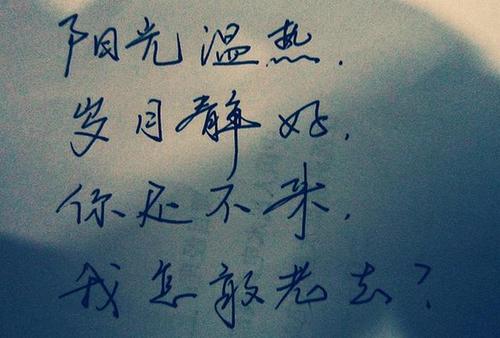 阳光温热.
岁月静好,
你还不来,
我怎敢老去?